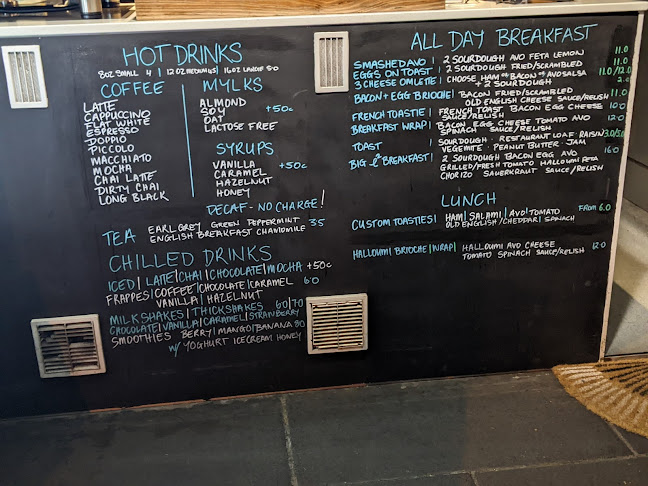 HOT DRINKS
8OZ SMALL 4 | 12OZ MEDIUM 4.5 | 16OZ LARGE 5.0
COFFEE
LATTE
CAPPUCCINO
FLAT WHITE
ESPRESSO
DOPPIO
PICCOLO
MACCHIATO
MOCHA
CHAI LATTE
DIRTY CHAI
LONG BLACK
MYLKS
ALMOND
SOY +50c
OAT
LACTOSE FREE
SYRUPS
VANILLA
CARAMEL +50c
HAZELNUT
HONEY
DECAF - NO CHARGE!
TEA EARL GREY GREEN PEPPERMINT
ENGLISH BREAKFAST CHAMOMILE 3.5
CHILLED DRINKS
ICED | LATTE | CHAI | CHOCOLATE | MOCHA +50c
FRAPPES | COFFEE | CHOCOLATE | CARAMEL 6.0
VANILLA | HAZELNUT
MILKSHAKES | THICKSHAKES 6.0/7.0
CHOCOLATE | VANILLA | CARAMEL | STRAWBERRY
SMOOTHIES BERRY | MANGO | BANANA 8.0
W/ YOGHURT ICECREAM HONEY
ALL DAY BREAKFAST
SMASHED AVO | 2 SOURDOUGH AVO FETA LEMON 11.0
EGGS ON TOAST | 2 SOURDOUGH FRIED/SCRAMBLED 11.0
3 CHEESE OMLETTE | CHOOSE HAM BACON AVO SALSA 11.0/12.0
+ 2 SOURDOUGH 2.0
BACON + EGG BRIOCHE | BACON FRIED/SCRAMBLED 11.0
OLD ENGLISH CHEESE SAUCE/RELISH
FRENCH TOASTIE | FRENCH TOAST BACON EGG CHEESE 10.0
SAUCE/RELISH
BREAKFAST WRAP | BACON EGG CHEESE TOMATO AVO 12.0
SPINACH SAUCE/RELISH
TOAST | 1 SOURDOUGH · RESTAURANT LOAF · RAISIN 3.0/5.0
VEGEMITE · PEANUT BUTTER · JAM
BIG BREAKFAST | 2 SOURDOUGH BACON EGG AVO 16.0
GRILLED/FRESH TOMATO HALLOUMI FETA
CHORIZO SAUERKRAUT SAUCE/RELISH
LUNCH
CUSTOM TOASTIES | HAM | SALAMI | AVO | TOMATO FROM 6.0
OLD ENGLISH / CHEDDAR | SPINACH
HALLOUMI BRIOCHE | WRAP | HALLOUMI AVO CHEESE 12.0
TOMATO SPINACH SAUCE/RELISH